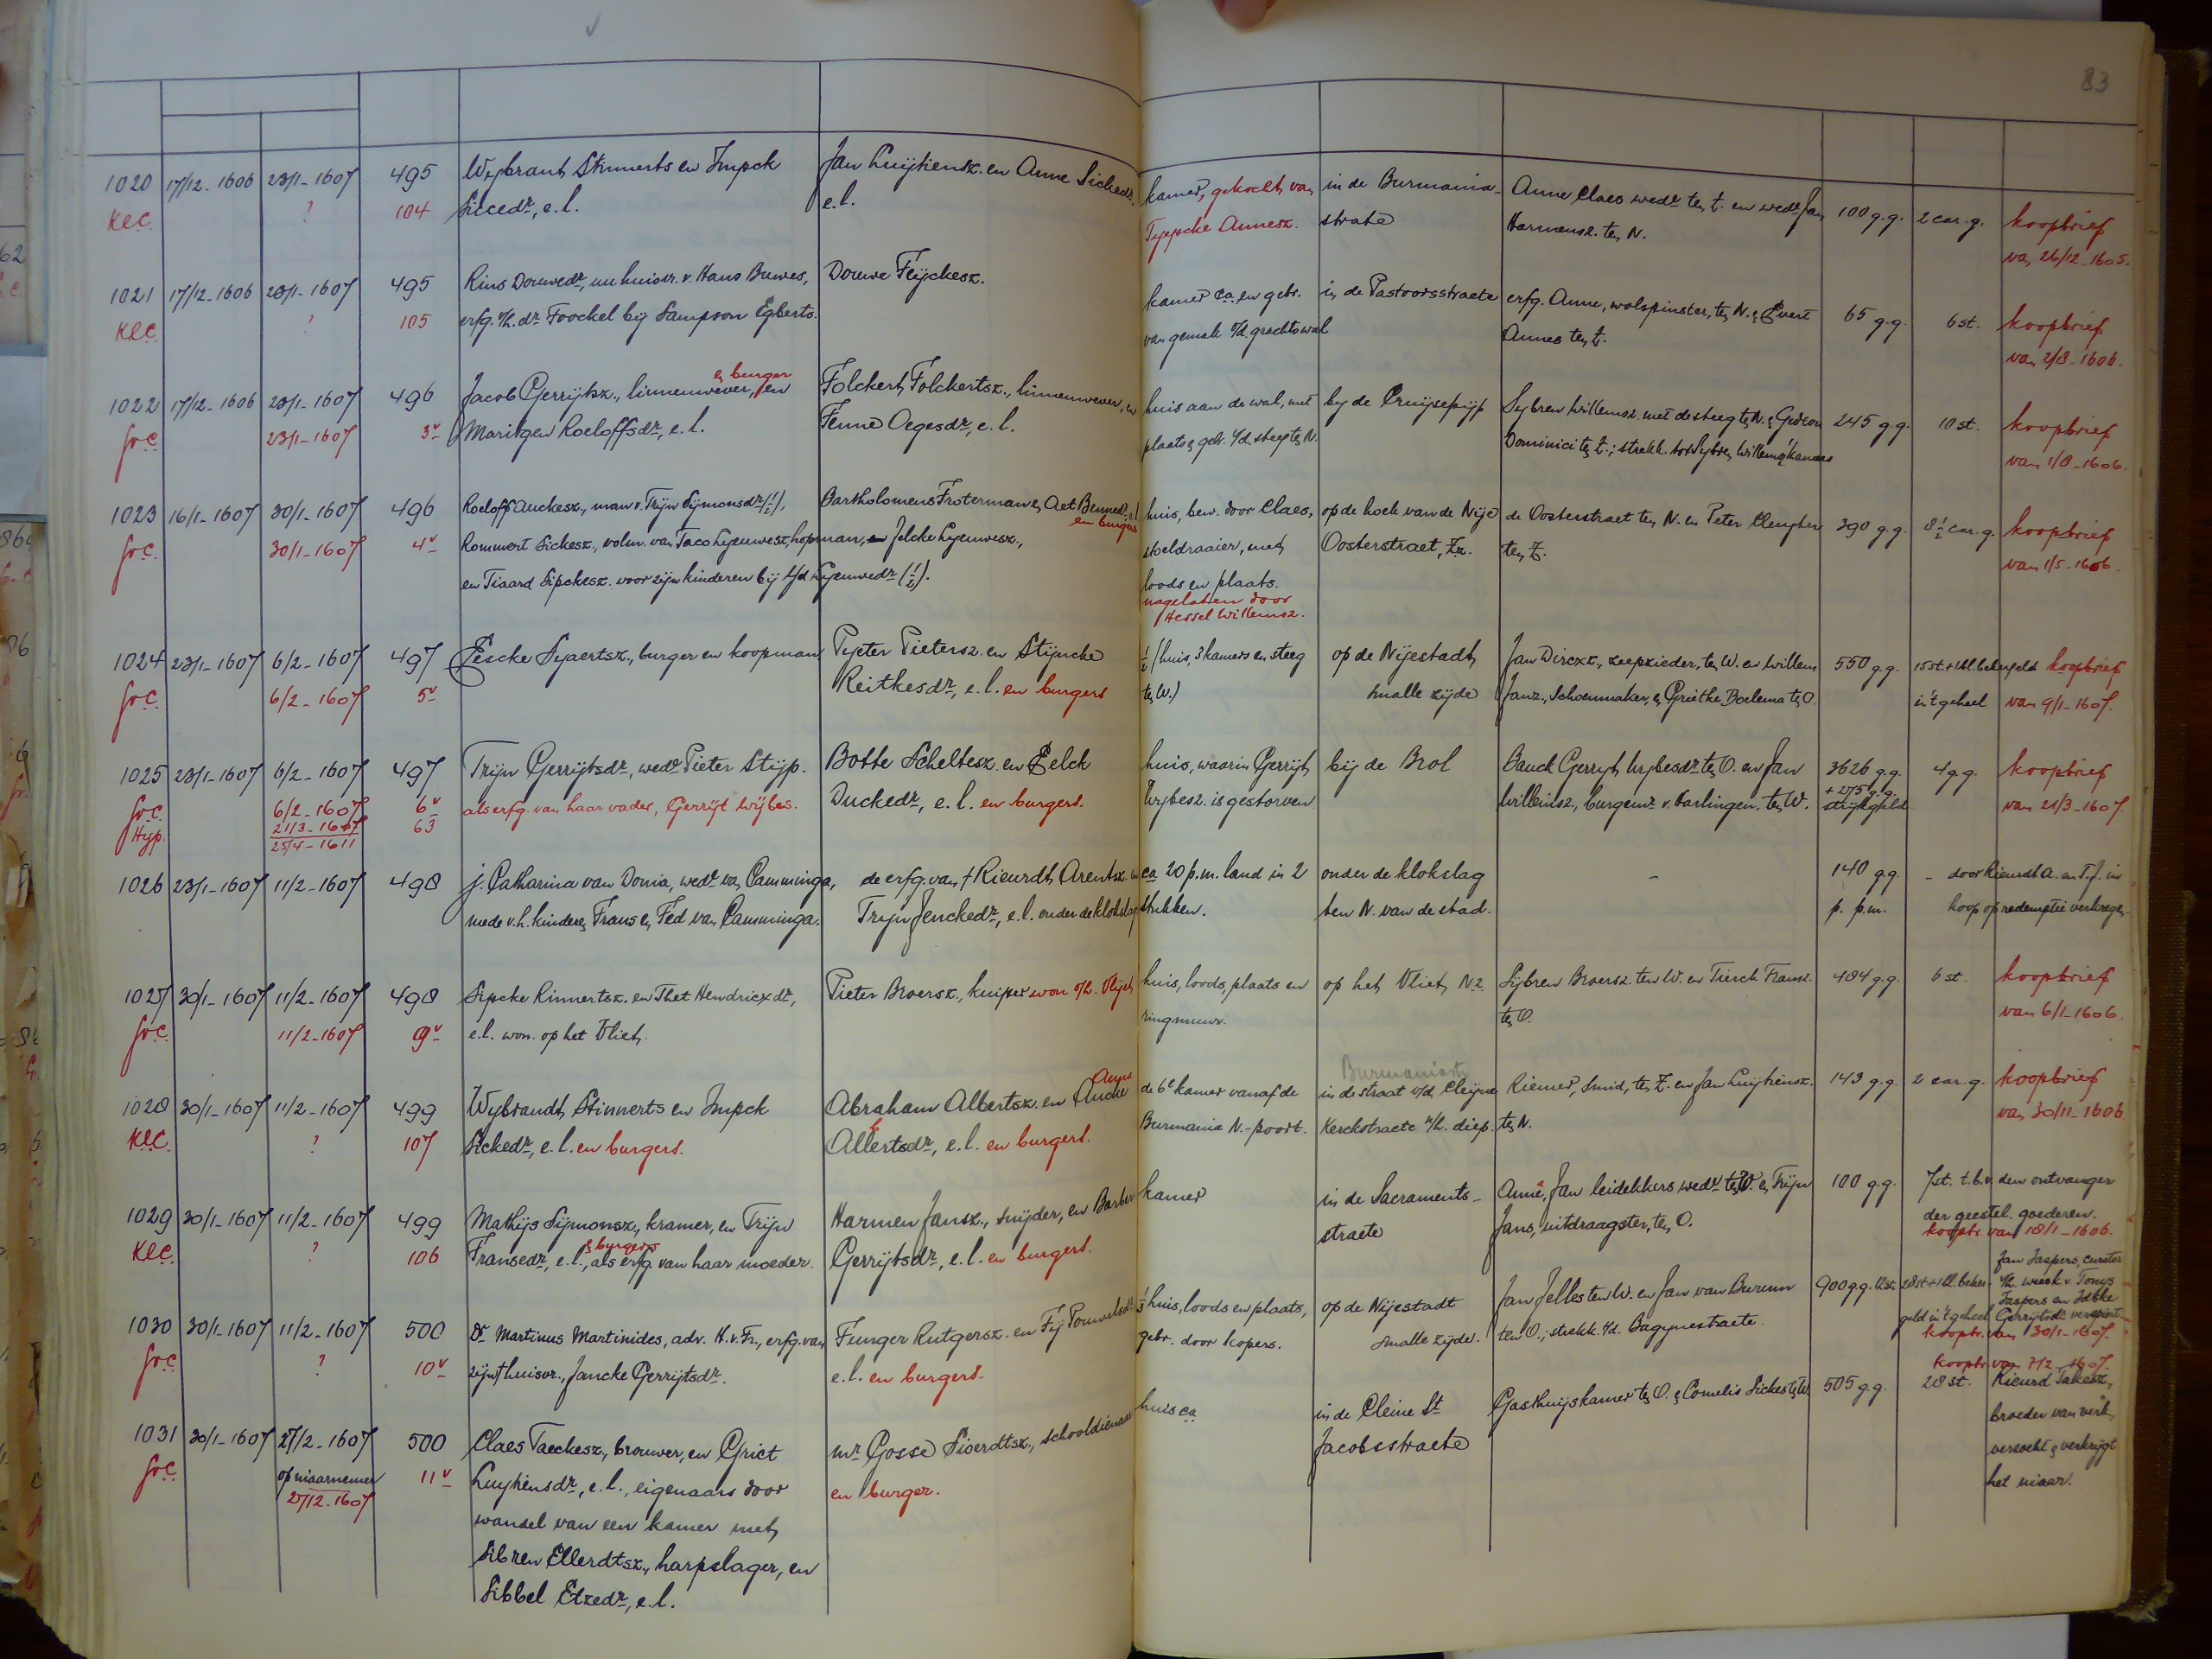 83
1020 17/12-1606 23/1-1607 495 Wijbrant Stinnerts en Impck Jan Luijtiensz. en Anne Sickedr. kamer, gekocht van in de Burmania- Anne Claes wedr ten Z. en wedr Jan 100 g.g. 2 car. g. koopbrief
KeC. ? 104 Siccedr, e.l. e.l. Tyepcke Annesz. strate Harmensz. ten N. van 26/12-1605.
1021 17/12-1606 23/1-1607 495 Rins Douwedr, nu huisvr. v. Hans Buwes, Douwe Feyckesz. kamer ca. en gebr. in de Pastoorsstraete erfg. Anne, wolspinster, ten N. en Evert 65 g.g. 6 st. koopbrief
KeC. ? 105 erfg. v/h. dr Foockel bij Sampson Egberts. van gemak o/d. grachtswal Annes ten Z. van 2/8-1606.
en burger
1022 17/12-1606 23/1-1607 496 Jacob Gerrijtsz., linnenwever, en Folckert Folckertsz., linnenwever, en huis aan de wal, met bij de Cruijsepijp Sybren Willemsz. met de steeg ten N. en Gideon 245 g.g. 10 st. koopbrief
GrC. 23/1-1607 3v Maritgen Roeloffsdr, e.l. Fenne Oegesdr, e.l. plaats en gebr. v/d. steeg ten N. Dominici ten Z.; strekk. tot Sybren Willemsz' kamers van 1/8-1606.
1023 16/1-1607 30/1-1607 496 Roeloff Auckesz., man v. Trijn Sijmonsdr (1/2), Bartholomeus Froterman en Aet Bennedr, e.l. huis, bew. door Claes, op de hoek van de Nije de Oosterstraet ten N. en Peter Cleuyter 390 g.g. 8½ car. g. koopbrief
en burgers
GrC. 30/1-1607 4v Rommert Sickesz., volm. van Taco Lyeuwesz., hopman, en Jelcke Lyeuwesz., stoeldraaier, met Oosterstraet, Zz. ten Z. van 1/5-1606.
en Tiaard Sipckesz. voor zijn kinderen bij Lyeuwedr (½). loods en plaats.
nagelaten door
Hessel Willemsz.
1024 23/1-1607 6/2-1607 497 Eescke Syaertsz., burger en koopman Pyeter Pietersz. en Stijncke ½ (huis, 3 kamers en steeg op de Nijestadt Jan Dircxz., zeepzieder, ten W. en Willem 550 g.g. 15 st. + 1 bl. bekengeld koopbrief
GrC. 6/2-1607 5v Reitkesdr, e.l. en burgers ten W.) smalle zijde Janz., schoenmaker, en Grietke Doelema ten O. in 't geheel van 9/1-1607.
1025 23/1-1607 6/2-1607 497 Trijn Gerrijtsdr, wedr Pieter Stijp. Botte Scheltesz. en Eelck huis, waarin Gerrijt bij de Brol Bauck Gerryt Wybesdr ten O. en Jan 3626 g.g. 4 g.g. koopbrief
GrC. 6/2-1607 6v als erfg. van haar vader, Gerrijt Wijbes. Duckedr, e.l. en burgers. Wybesz. is gestorven Willemsz., burgemr v. Harlingen, ten W. + 275 g.g. strijkgeld van 21/3-1607.
Hyp. 21/3-1607 63
25/4-1611
1026 23/1-1607 11/2-1607 498 j. Catharina van Donia, wedr van Camminga, de erfg. van † Rieurdt Arentsz. en ca 20 p.m. land in 2 onder de klokslag - 140 g.g. - door Rieurdt A. en T.J. in
mede v.h. kinderen Frans en Fed van Camminga. Trijn Jenckedr, e.l. onder de klokslag stukken. ten N. van de stad. p. p.m. koop op redemptie verkregen.
1027 30/1-1607 11/2-1607 498 Sipcke Rinnertsz. en Thet Hendricxdr, Pieter Broersz., kuiper won o/h. Vlijet huis, loods, plaats en op het Vliet Nz. Sijbren Broersz. ten W. en Tierck Fransz. 484 g.g. 6 st. koopbrief
GrC. 11/2-1607 9v e.l. won. op het Vliet. ringmuur. ten O. van 6/1-1606.
Anna Burmaniastr
1028 30/1-1607 11/2-1607 499 Wybrandt Stinnerts en Impck Abraham Albertsz. en Aucke de 6e kamer vanaf de in de straat v/d. Cleijne Riemer, smid, ten Z. en Jan Luijtiensz. 143 g.g. 2 car. g. koopbrief
KeC. ? 107 Sickedr, e.l. en burgers. Allertsdr, e.l. en burgers. Burmania N.-poort. Kerckstraete n/h. diep. ten N. van 30/11-1606
1029 30/1-1607 11/2-1607 499 Mathijs Sijmonsz., kramer, en Trijn Harmen Jansz., snijder, en Barber kamer in de Sacraments- Anne, Jan leidekkers wedr ten W. en Trijn 100 g.g. 7 st. t.b.v. den ontvanger
en burgers der geestel. goederen.
KeC. ? 106 Fransedr, e.l., als erfg. van haar moeder. Gerrijtsdr, e.l. en burgers. straete Jans, uitdraagster, ten O. koopbr. van 18/1-1606.
1030 30/1-1607 11/2-1607 500 Dr Martinus Martinides, adv. H.v.Fr., erfg. van Funger Rutgersz. en Fij Pouwelsdr, ⅓ huis, loods en plaats, op de Nijestadt Jan Jelles ten W. en Jan van Bueren 900 g.g. 12 st. 28 st. + 1 bl. beken- Jan Jaspers, curator
geld in 't geheel v/h. weesk. v. Tonys
Jaspers en Gerrijtsdr
GrC. ? 10v zijn † huisvr., Jancke Gerrijtsdr. e.l. en burgers. gebr. door kopers. smalle zijde. ten O.; strekk. t/d. Bagynestraete. koopbr. van 30/1-1607.
1031 30/1-1607 27/2-1607 500 Claes Taeckesz., brouwer, en Griet mr Gosse Sioerdtsz., schooldienaar huis ca in de Cleine St Gasthuijskamer ten O. en Cornelis Sickes ten W. 505 g.g. 28 st. koopbr. van 7/2-1607.
GrC. op niaarnemer 11v Luytiensdr, e.l., eigenaars door en burger. Jacobsstraete Rieurd Takesz.,
27/2-1607 wandel van een kamer met broeder van verk.,
Sibren Ellerdtsz., harpslager, en verzoekt en verkrijgt
Sibbel Etzedr, e.l. het niaar.